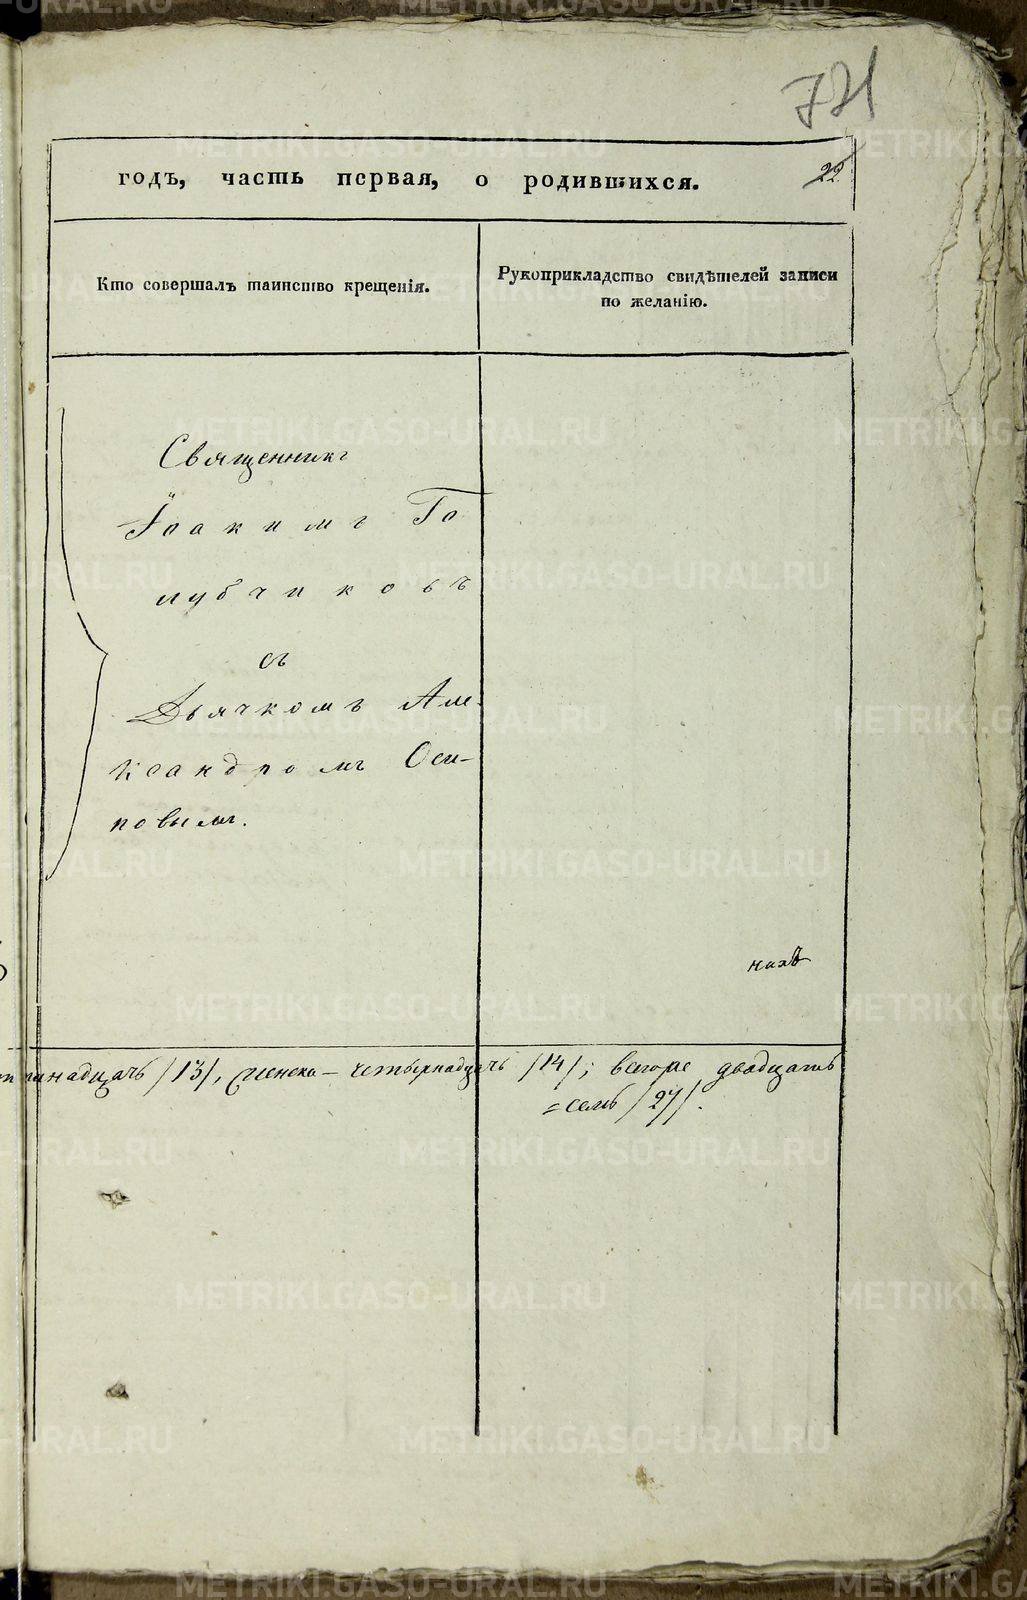 721
годъ, часть первая, о родившихся. 22
Кто совершалъ таинство крещенія.
Рукоприкладство свидѣтелей записи
по желанію.
Священникъ
Іоакимъ Го
лубчиковъ
съ
Дьячкомъ Але-
ксандромъ Оси-
повымъ.
нихъ
тринадцать /13/, женска – четырнадцать /14/; всего же двадцать
=семь /27/.
METRIKI.GASO-URAL.RU